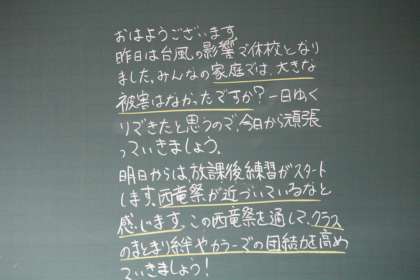 おはようございます。
昨日は台風の影響で休校となり
ました。みんなの家庭では、大きな
被害はなかったですか?一日ゆっく
りできたと思うので、今日から頑張
っていきましょう。
明日からは放課後練習がスタート
します。西竜祭が近づいているなと
感じます。この西竜祭を通して、クラス
のまとまり絆やカラーでの団結力を高め
ていきましょう!